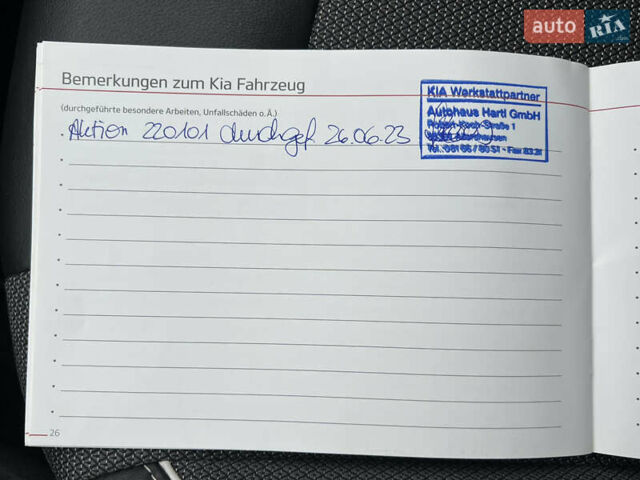 auto RIA
Bemerkungen zum Kia Fahrzeug
(durchgeführte besondere Arbeiten, Unfallschäden o.Ä.)
Aktion 220101 durchgef. 26.06.23
KIA Werkstattpartner
Autohaus Hartl GmbH
Robert-Koch-Straße 1
Tel.: 081 66 / 80 51 - Fax
26